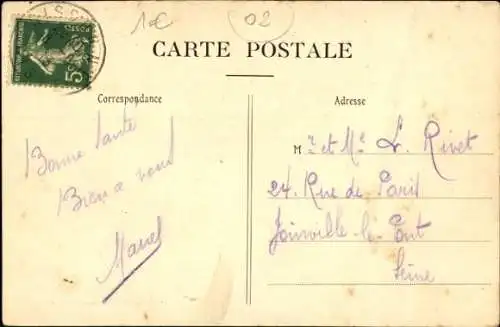 1€
02
CARTE POSTALE
Correspondance
Adresse
Bonne santé
Bien à vous
Marcel
Mr et Me L. Rivet
24 Rue de Paris
Joinville-le-Pont
Seine
POSTES
5c